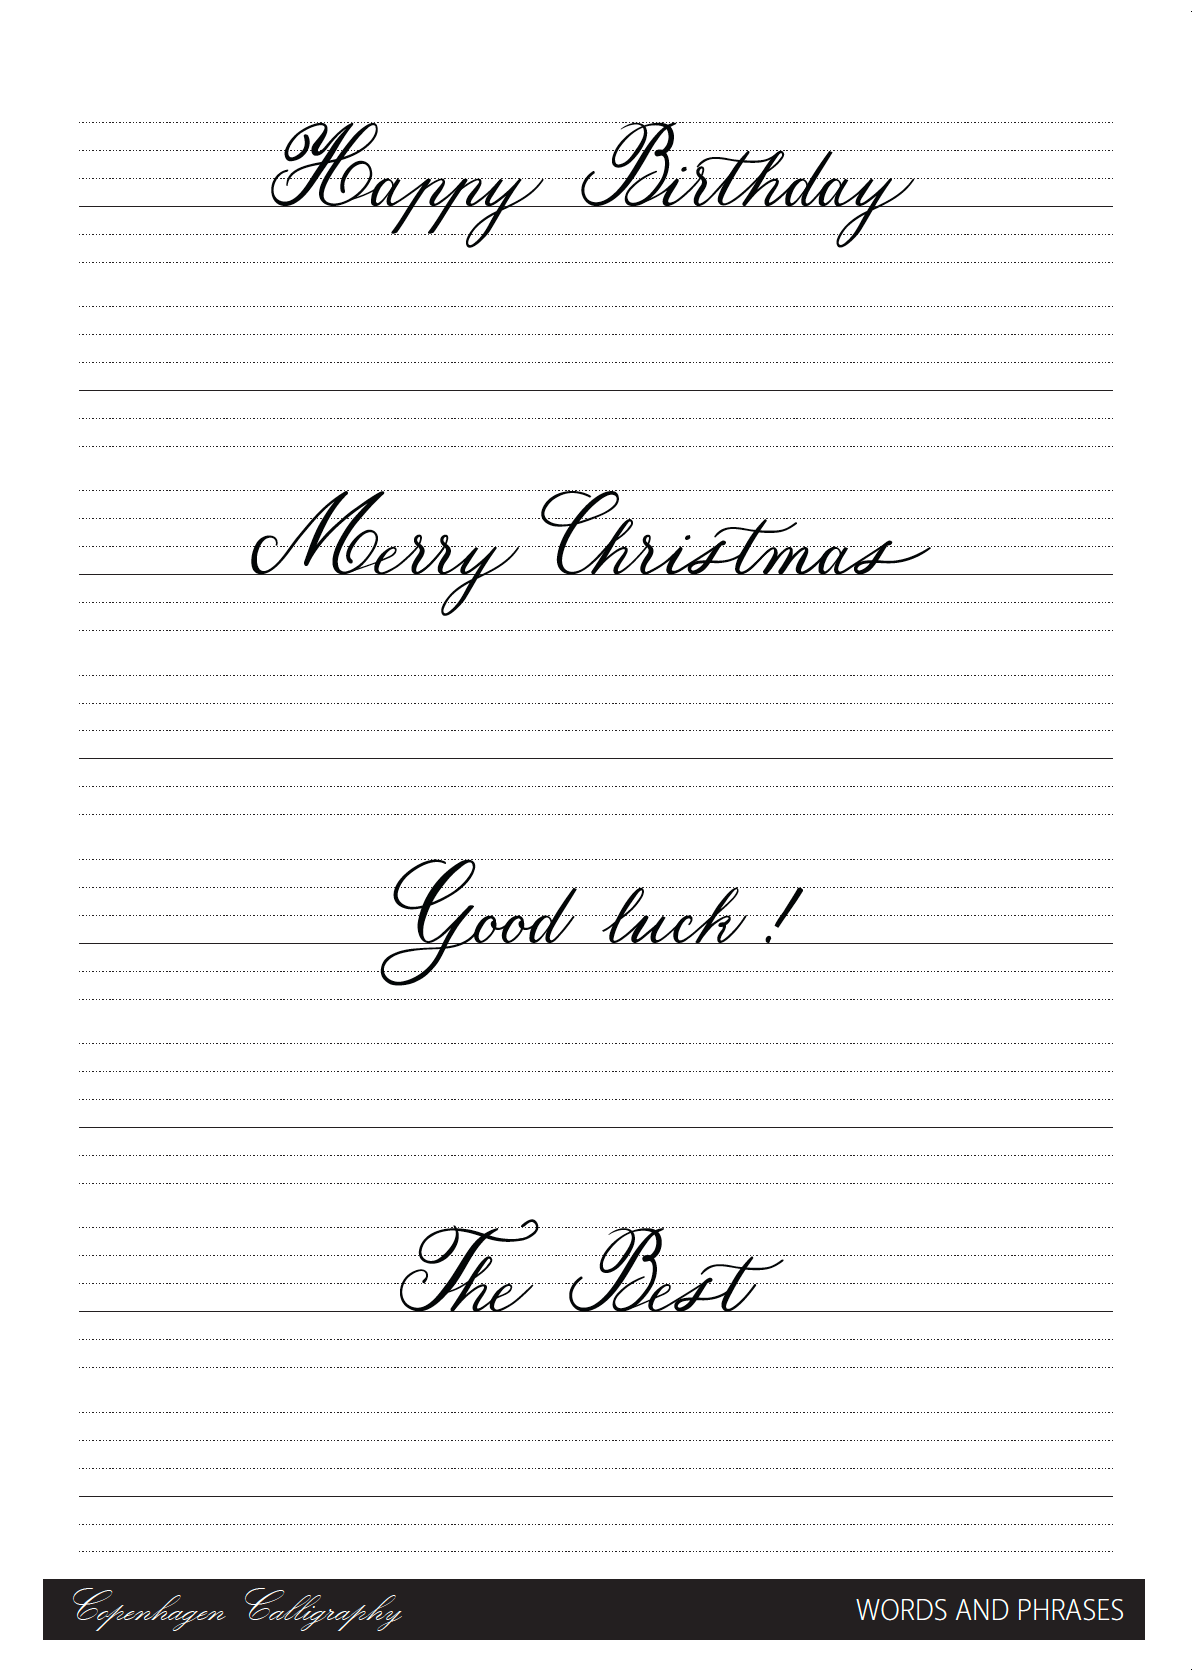 Happy Birthday
Merry Christmas
Good luck!
The Best
Copenhagen Calligraphy WORDS AND PHRASES